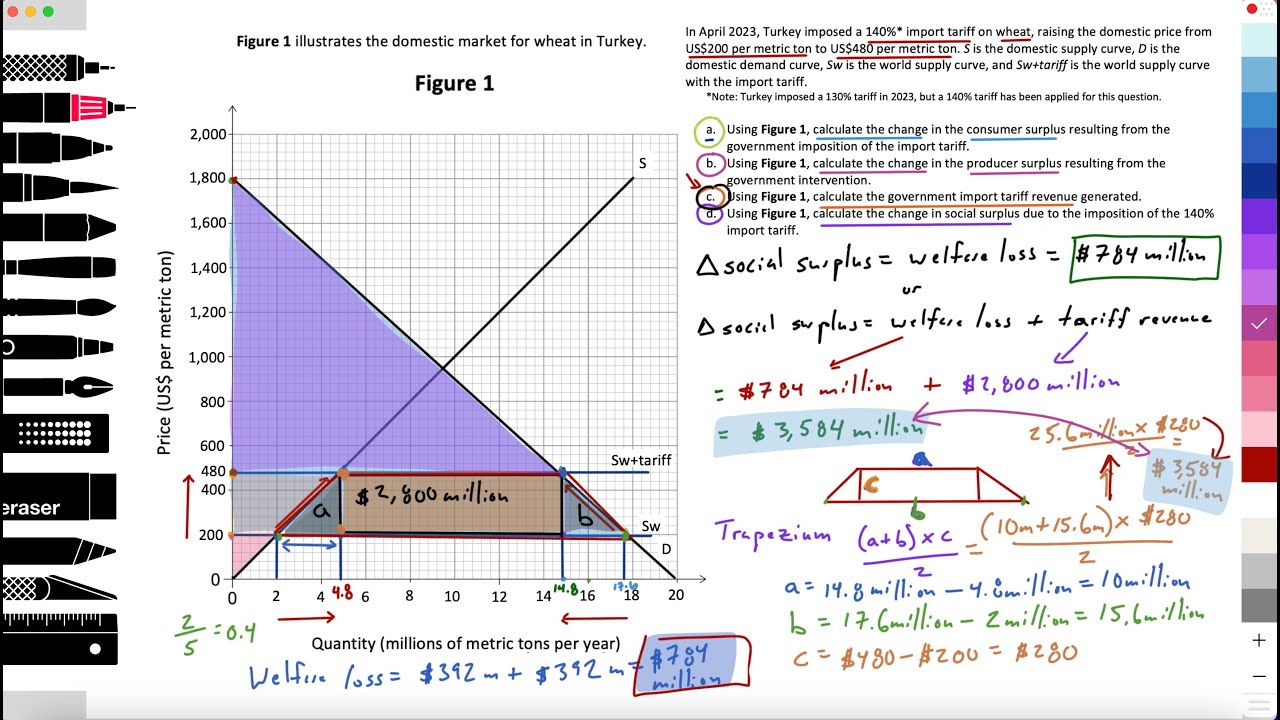 Figure 1 illustrates the domestic market for wheat in Turkey.
Figure 1
In April 2023, Turkey imposed a 140%* import tariff on wheat, raising the domestic price from
US$200 per metric ton to US$480 per metric ton. S is the domestic supply curve, D is the
domestic demand curve, Sw is the world supply curve, and Sw+tariff is the world supply curve
with the import tariff.
*Note: Turkey imposed a 130% tariff in 2023, but a 140% tariff has been applied for this question.
a. Using Figure 1, calculate the change in the consumer surplus resulting from the
government imposition of the import tariff.
b. Using Figure 1, calculate the change in the producer surplus resulting from the
government intervention.
c. Using Figure 1, calculate the government import tariff revenue generated.
d. Using Figure 1, calculate the change in social surplus due to the imposition of the 140%
import tariff.
Δ social surplus = welfare loss = $784 million
or
Δ social surplus = welfare loss + tariff revenue
= $784 million + $2,800 million
= $3,584 million
25.6million x $280
2
=
$3,584
million
a
c
b
Trapezium (a+b) x c
2
= (10m+15.6m) x $280
2
a = 14.8 million - 4.8million = 10million
b = 17.6million - 2million = 15.6million
c = $480 - $200 = $280
Price (US$ per metric ton)
2,000
1,800
1,600
1,400
1,200
1,000
800
600
480
400
200
0
S
Sw+tariff
Sw
D
a
$2,800 million
b
0 2 4 4.8 6 8 10 12 14 14.8 17.6 18 20
16
Quantity (millions of metric tons per year)
2
5
=0.4
Welfare loss = $392 m + $392 m = $784
million
eraser